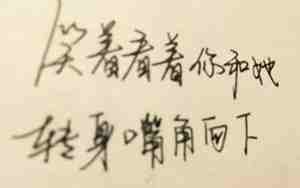 笑着看着你和她
转身嘴角向下